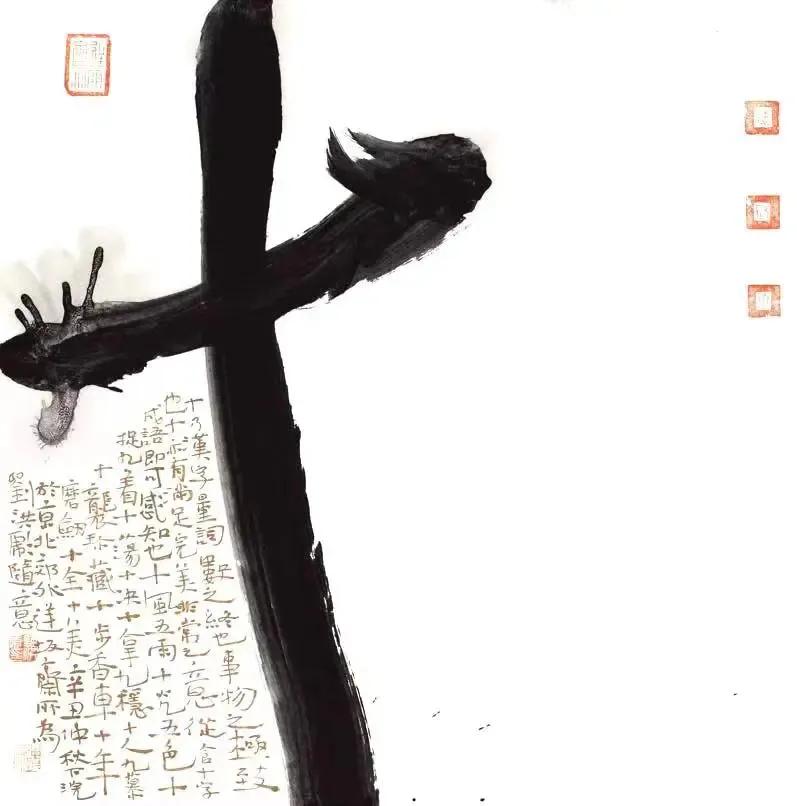 十
十乃漢字量詞數之終也事物之極致
也十亦有滿足完美非常之意從含十字
成語即可感知也十風五雨十光五色十
捉九着十蕩十決十拿九穩十人九慕
十襲珍藏十步香車十年
磨劍十全十美辛丑仲秋下浣
於京北郊外齋所為
劉洪彪隨意